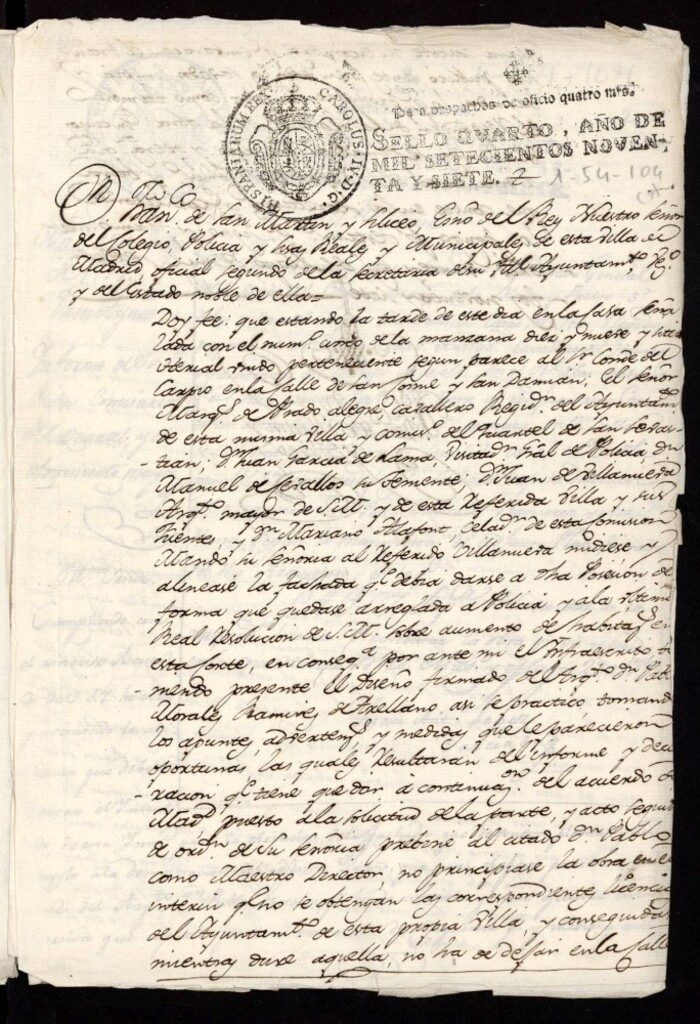 HISPANIARUM REX CAROLUS IV D.G.
Para despachos de oficio quatro mrs.
SELLO QUARTO, AÑO DE
MIL SETECIENTOS NOVEN-
TA Y SIETE.
2 1-54-104
de San Martin y essno. del Rey Nuestro Señor
del Colegio, Policia y Reales y Municipales de esta Villa de
Madrid, oficial segundo de la Secretaria de su Ayuntamto.
y del estado noble de ella=
Doy fee: que estando la tarde de este dia en la Casa seña
lada con el num.o cinco de la manzana diez y nueve y
perteneciente segun parece al Sr. Conde del
Carpio en la Calle de San Cosme y San Damian; El señor
Marq.s de Prado alegre, cavallero Regidr. del Ayuntamto.
de esta misma Villa y comis.o del Quartel de San Sevas-
tian; Dn. Juan Garcia de Rama, Visitadr. Gral de Policia, Dn.
Manuel de Cevallos su Temente; Dn. Juan de Villanueva
Arqto. mayor de S.M. y de esta referida Villa y sus
fuentes, y Dn. Mariano Alafont, Celadr. de esta comision
Mandó su señoria al referido Villanueva midiese y
alinease la fachada q.e debia darse a dha Posesion de
forma que quedase arreglada a Policia, y a la
Real Resolucion de S.M. sobre aumento de havitacs. en
esta Corte, en conseq.a por ante mi el Infraescrito te
niendo presente el Diseño firmado del Arqto. Dn. Pablo
Morales Ramirez de Arellano, asi se practicó tomando
los apuntes, advertens. y medidas que le parecieron
oportunas las quales resultarán del informe y decla
racion q.e tiene que dar á continuazon. del acuerdo de
Madd. puesto á la solicitud de la parte, y acto seguido
de ordn. de Su señoria previne al citado Dn. Pablo
como Maestro Director, no principiase la obra en el
interin q.e no se obtengan las correspondientes licencias
del Ayuntamto. de esta propia Villa, y conseguidas
mientras dure aquella, no ha de dejar en la Calle